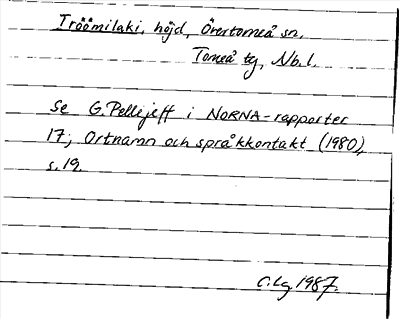 Tröömilaki, höjd, Övertorneå sn,
Torneå tg, Nb.l.
Se G.Pellijeff i NORNA-rapporter
17, Ortnamn och språkkontakt (1980),
s.19.
C.Lg 1987.